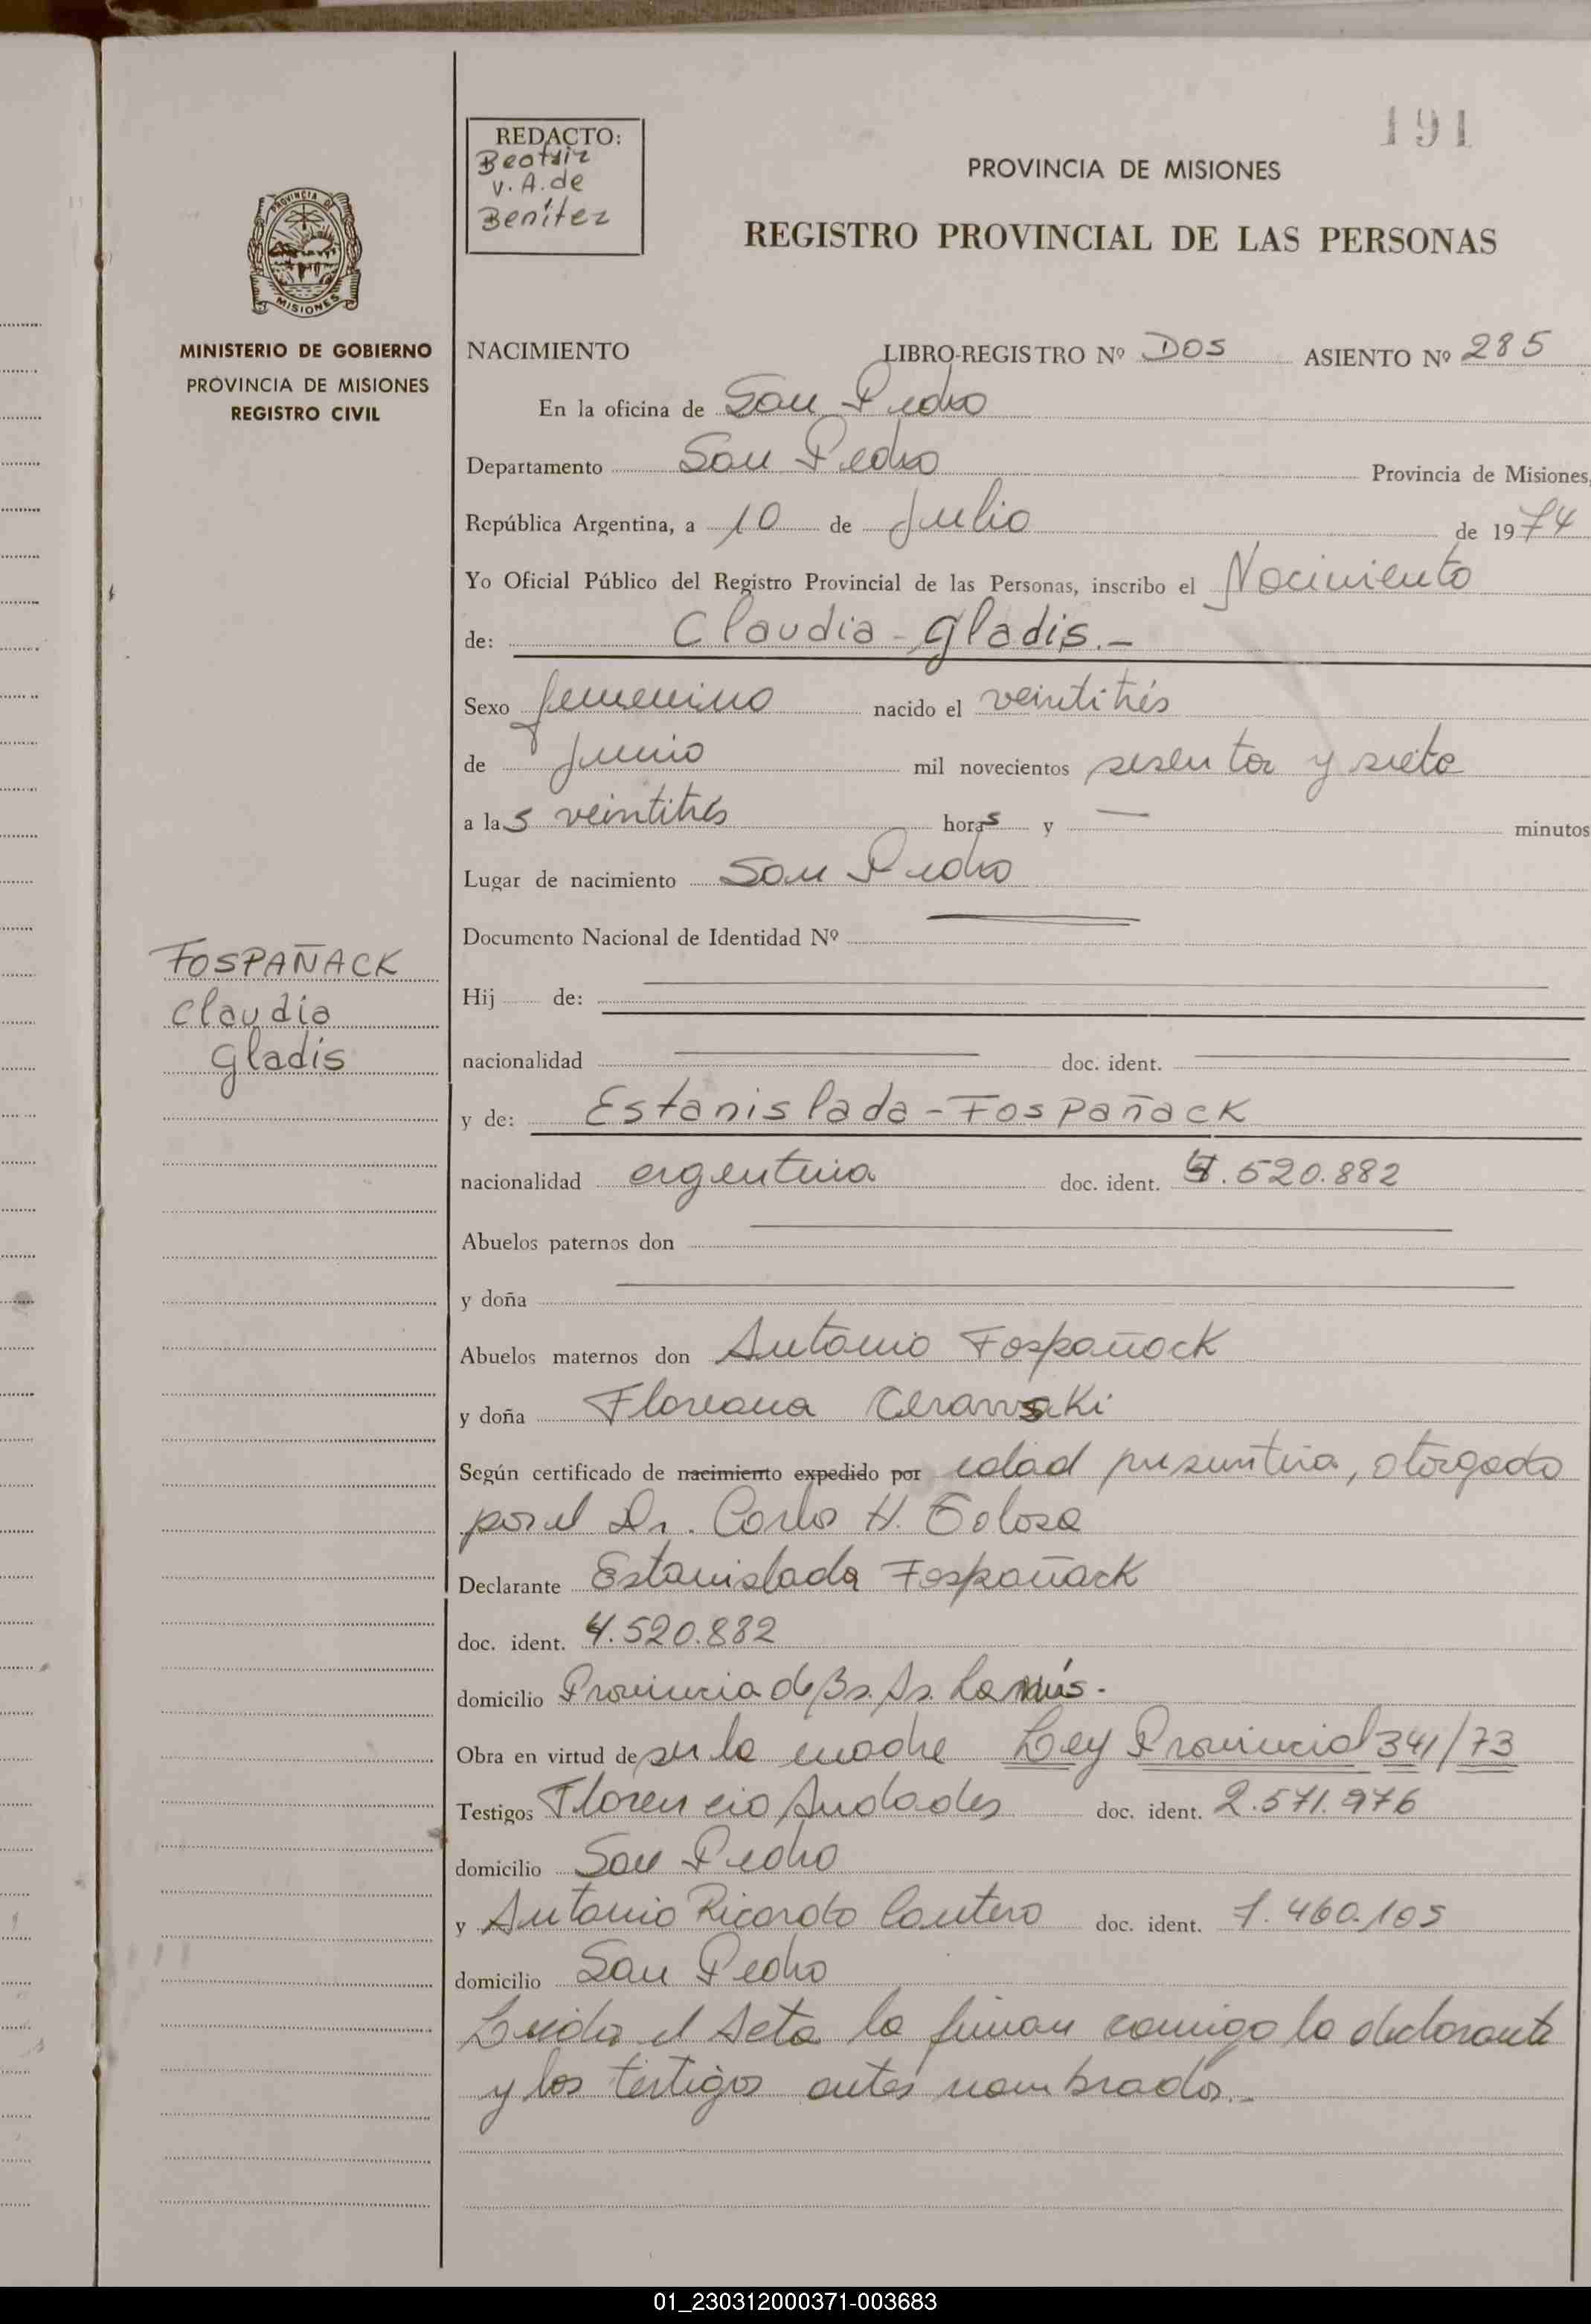 191
REDACTO:
Beatriz
V. A. de
Benítez
PROVINCIA DE MISIONES
REGISTRO PROVINCIAL DE LAS PERSONAS
PROVINCIA DE
MISIONES
MINISTERIO DE GOBIERNO
PROVINCIA DE MISIONES
REGISTRO CIVIL
NACIMIENTO LIBRO-REGISTRO Nº DOS ASIENTO Nº 285
En la oficina de San Pedro
Departamento San Pedro Provincia de Misiones,
República Argentina, a 10 de Julio de 1974
Yo Oficial Público del Registro Provincial de las Personas, inscribo el Nacimiento
de: Claudia - Gladis.-
Sexo femenino nacido el veintitrés
de Junio mil novecientos sesenta y siete
a las veintitrés horas y — minutos
Lugar de nacimiento San Pedro
Documento Nacional de Identidad Nº
FOSPAÑACK
Claudia
Gladis
Hij de:
nacionalidad doc. ident.
y de: Estanislada - Fospañack
nacionalidad argentina doc. ident. 4.520.882
Abuelos paternos don
y doña
Abuelos maternos don Antonio Fospañack
y doña Floreana
Según certificado de nacimiento expedido por edad presuntiva, otorgado
por el Dr. Carlos H. Tolosa
Declarante Estanislada Fospañack
doc. ident. 4.520.882
domicilio Provincia de Bs. As. Lanús.
Obra en virtud de ser la madre Ley Provincial 341/73
Testigos Florencio Andrades doc. ident. 2.571.976
domicilio San Pedro
y Antonio Ricardo Cantero doc. ident. 7.460.105
domicilio San Pedro
Leída el Acta la firman conmigo la declarante
y los testigos antes nombrados.-
01_230312000371-003683